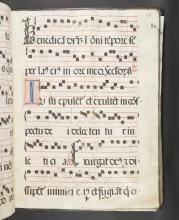 Benedicā dn̄m ī om̄i tēpore sē
per laꝰ eiꝰ in ore meo. Secl'oꝝ.
Iusti epulēt̄ et exultēt in cōs
pectu de i delecten tu r in
le ti ci a Exurgat deꝰ ⁊ di
sipēt̄ inimici eiꝰ et fugiāt q̄ o